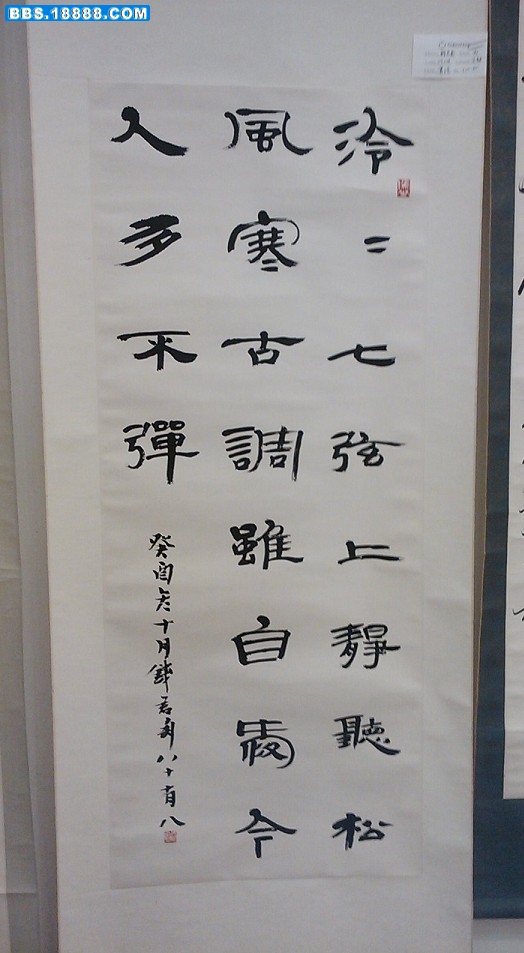 BBS.18888.COM
泠〻七弦上靜聽松
風寒古調雖自愛今
人多不彈
癸酉冬十月錢君匋八十有八